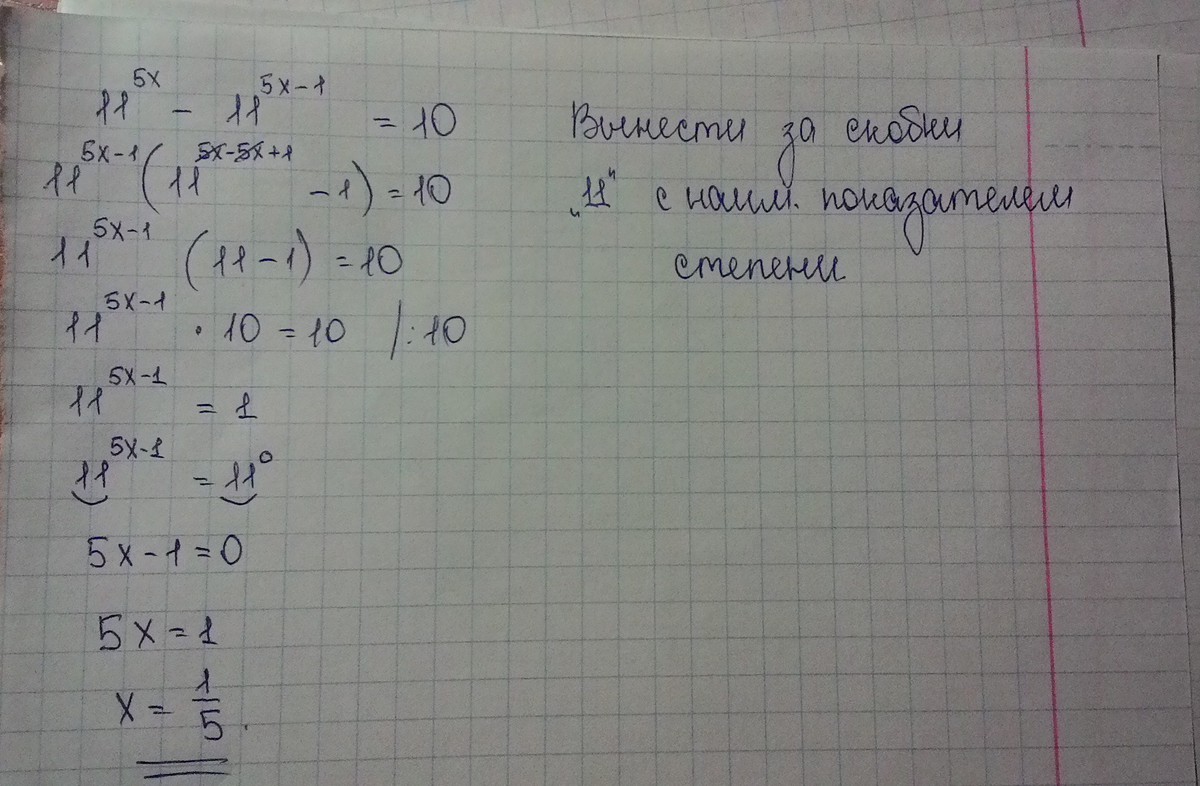 11^(5x) - 11^(5x-1) = 10
11^(5x-1) (11^(5x-5x+1) - 1) = 10
11^(5x-1) (11 - 1) = 10
11^(5x-1) · 10 = 10 /:10
11^(5x-1) = 1
11^(5x-1) = 11^0
5x - 1 = 0
5x = 1
x = 1/5.
Вынести за скобки
„11“ с наим. показателем
степени